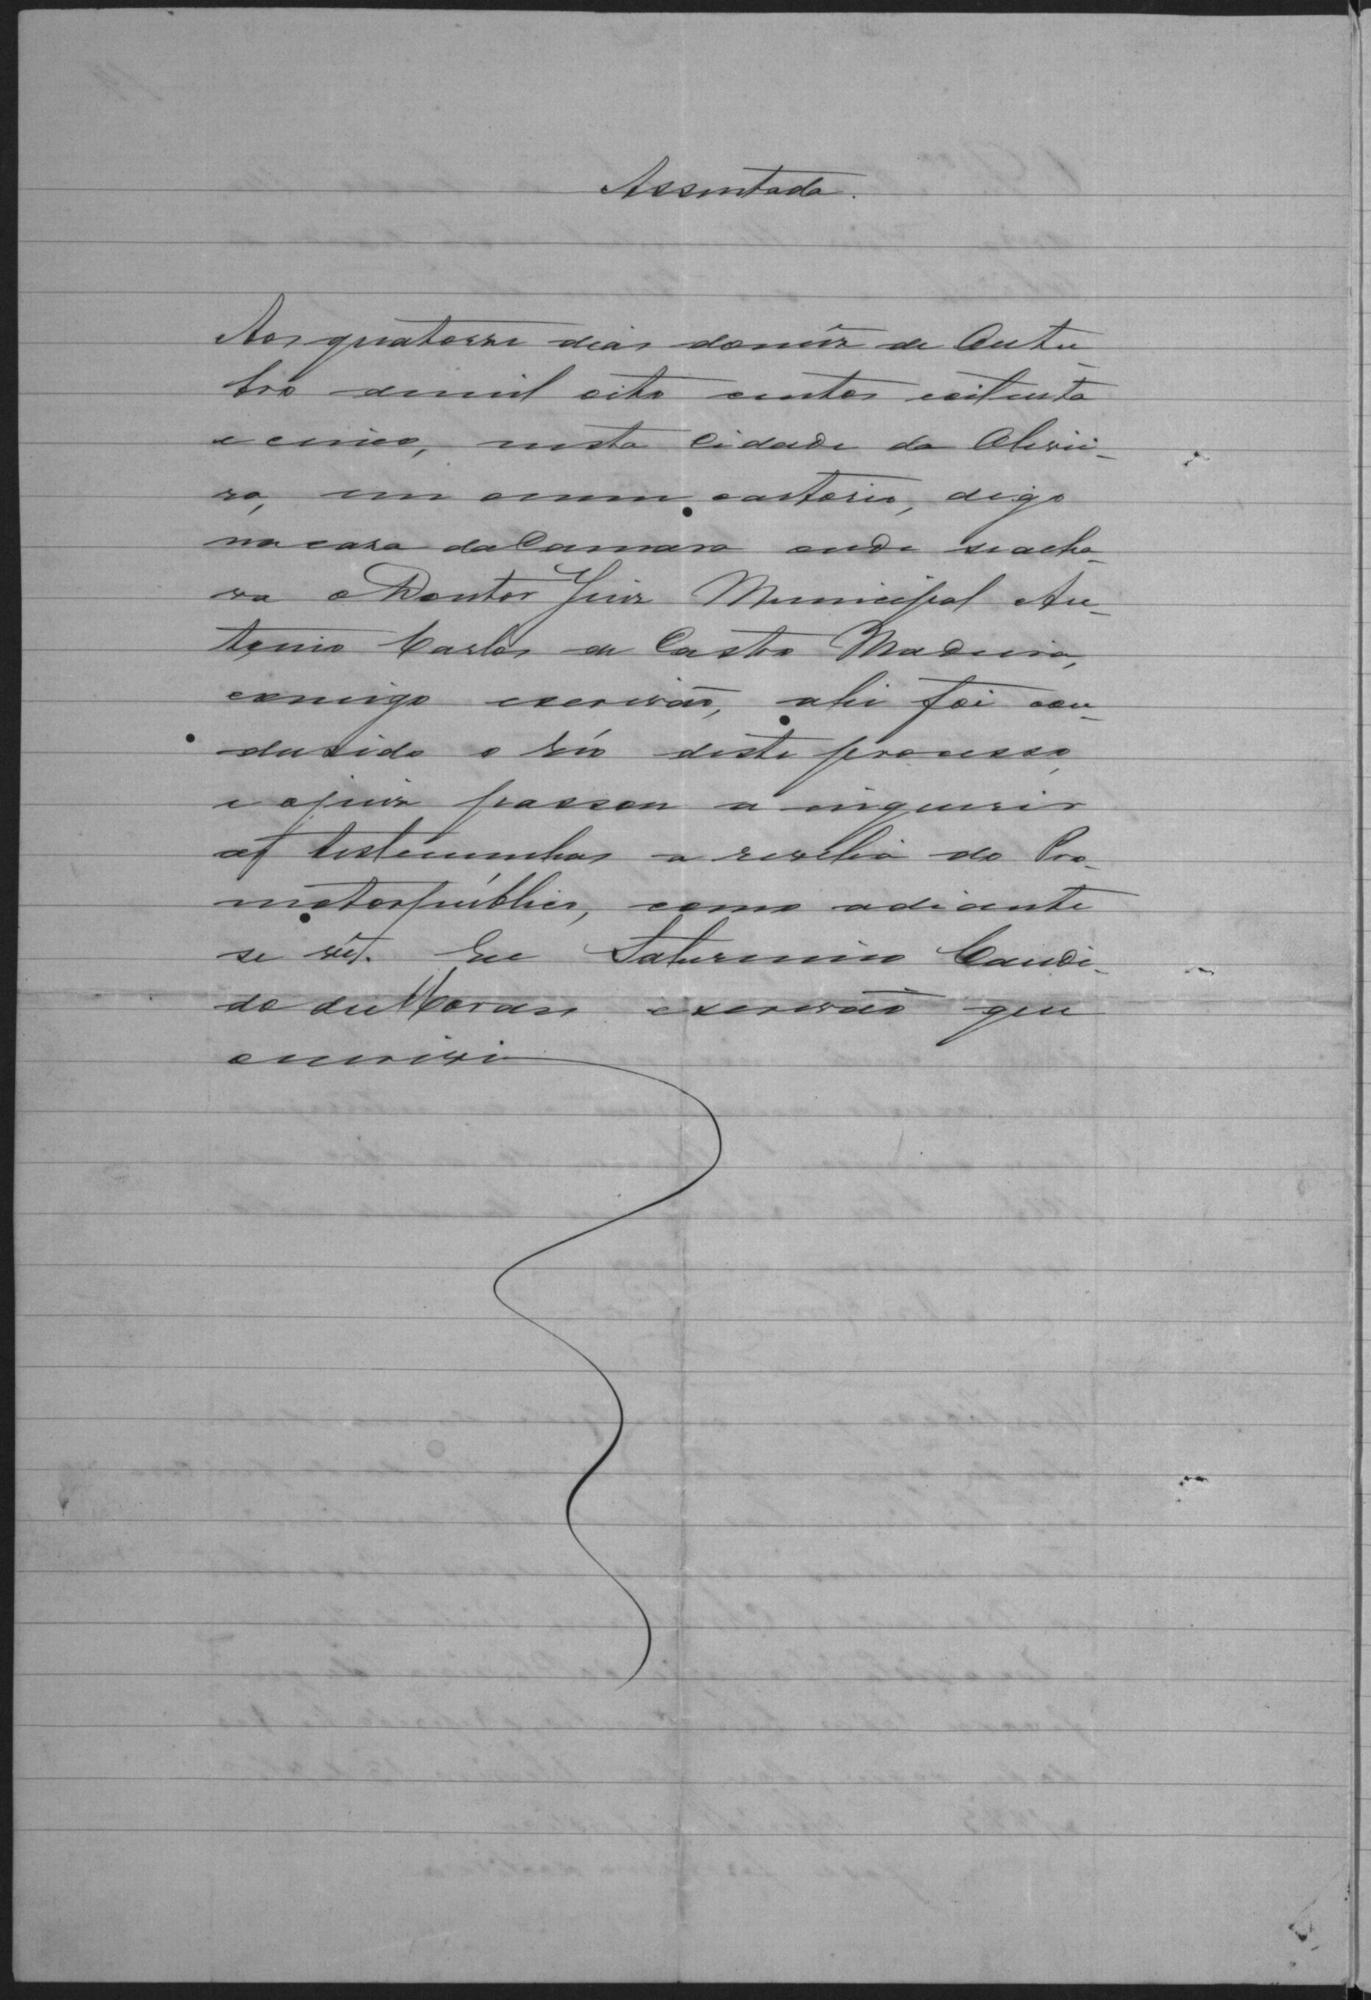 Assentada.
Aos quatorze dias do mez de Outu-
bro de mil oito centos e oitenta
e cinco, nesta Cidade da Olivei-
ra, em o meu cartorio, digo
na casa da Camara onde se acha-
va o Doutor Juiz Municipal An-
tonio Carlos de Castro Madeira,
comigo escrivão, ahi foi con-
dusido o réo deste processo,
e o juiz passou a inquerir
as testemunhas a revelia do Pro-
motor publico, como adiante
se vê. Eu Saturnino Candi-
do de Moraes escrivão que
o escrivi